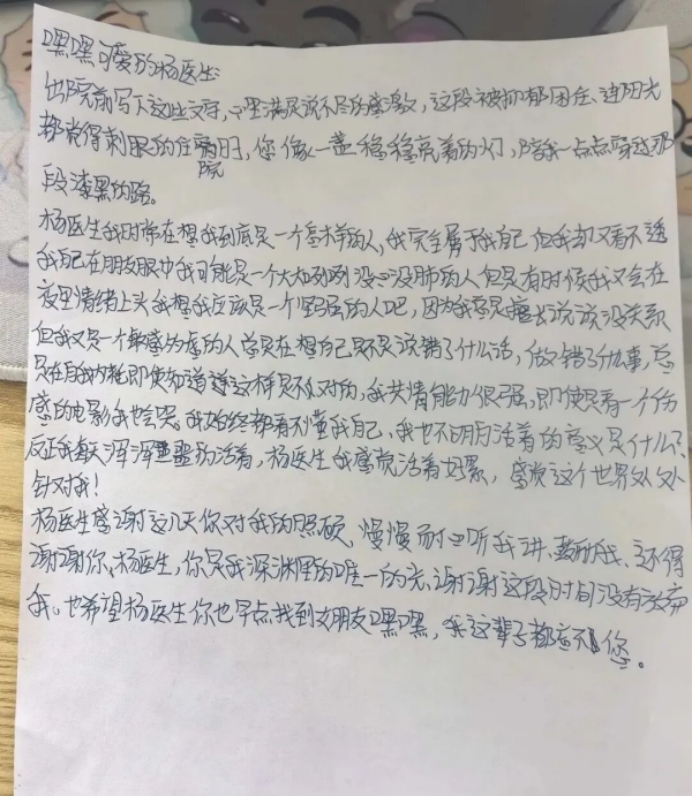 嘿嘿可爱的杨医生:
出院前写下这些文字,心里满是说不尽的感激,这段被抑郁困住、连阳光
都觉得刺眼的住院日,您像一盏稳稳亮着的灯,陪我一点点穿过那
段漆黑的路。
杨医生我时常在想我到底是一个怎样的人,我完全属于我自己 但我却又看不透
我自己在朋友眼中我可能是一个大大咧咧没心没肺的人但是有时候我又会在
夜里情绪上头我想我应该是一个坚强的人吧,因为我总是擅长说说没关系
但我又是一个敏感为虑的人总是在想自己是不是说错了什么话,做错了什么事,总
是在自我内耗即使知道道这样是不对的,我共情能力很强,即使只看一个伤
感的电影我也会哭。我始终都看不懂我自己、我也不明白活着的意义是什么?
反正我每天浑浑噩噩的活着,杨医生我感觉活着好累,感觉这个世界处处
针对我!
杨医生感谢这几天你对我的照顾,慢慢耐心听我讲、鼓励我、逗得
谢谢你、杨医生,你是我深渊里的唯一的光.谢谢这段时间没有放弃
我、也希望杨医生你也早点找到女朋友嘿嘿,我这辈子都忘不了您。